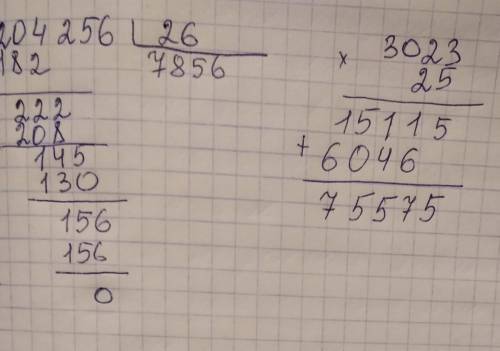 204 256 | 26
182 7856
222
208
145
130
156
156
0
× 3023
25
15115
+ 6046
75575